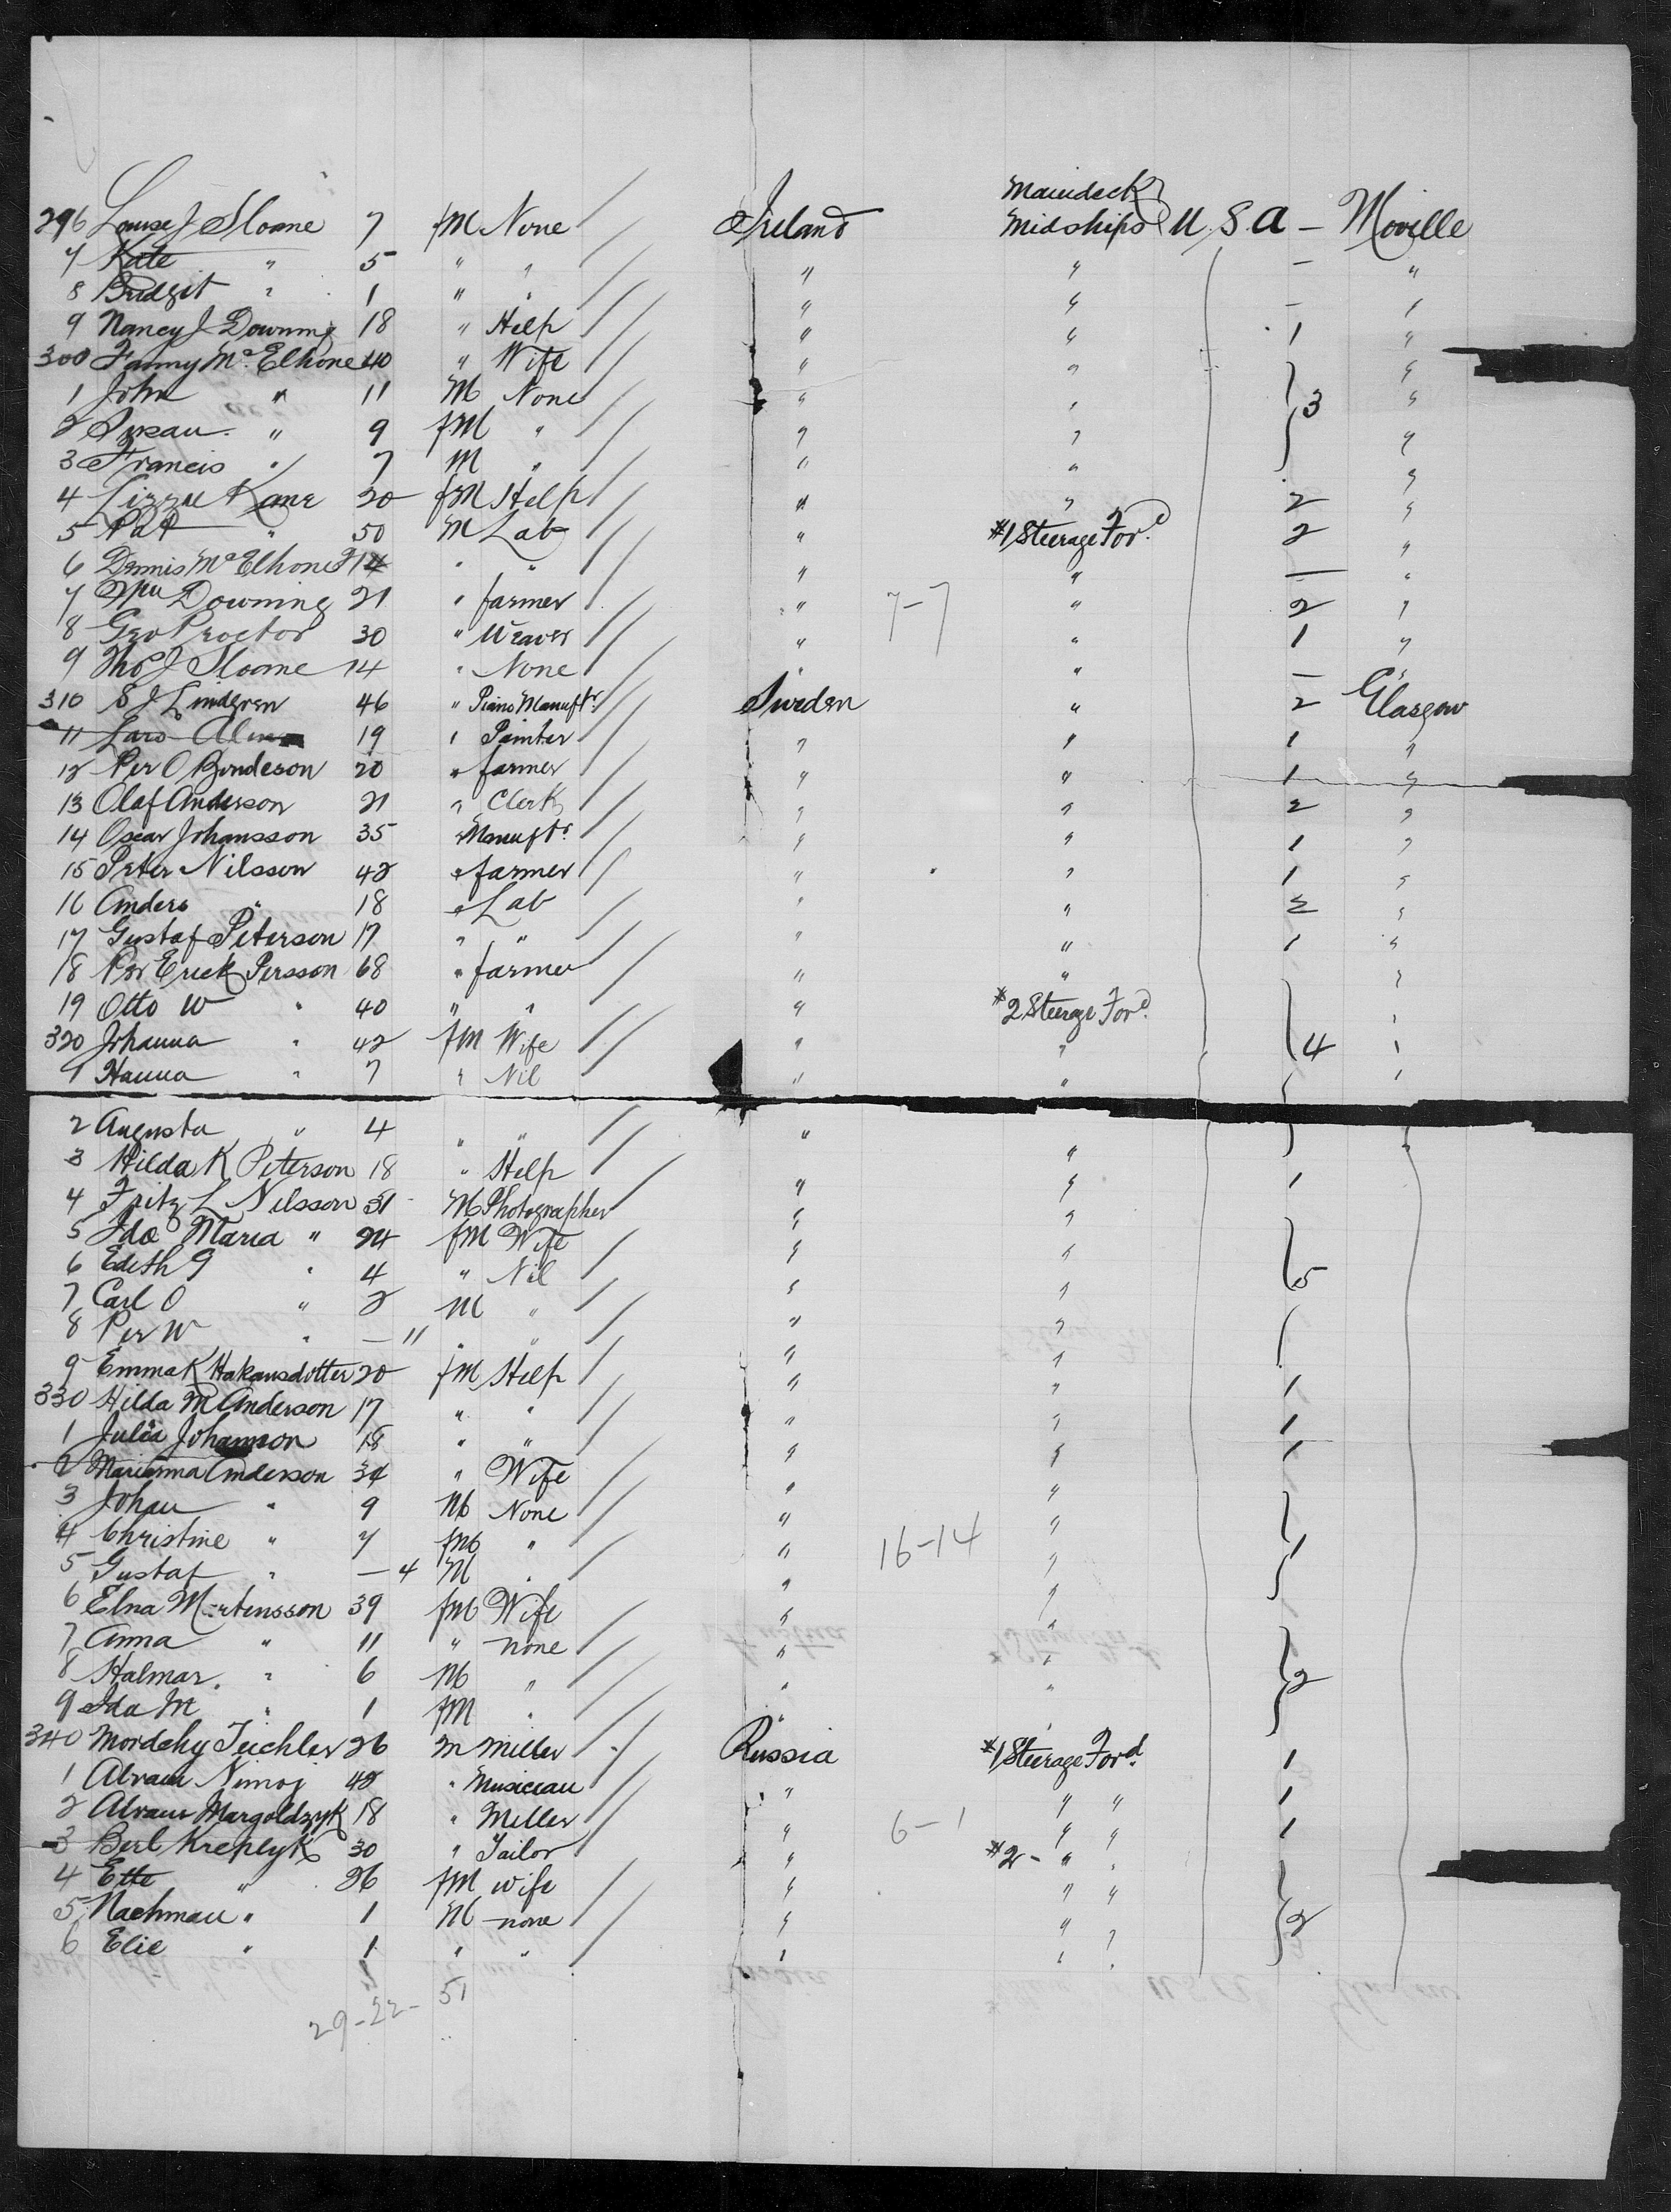 Maindeck
296 Louise J Sloane 7 fM None Ireland Midships U.S.A - Moville
7 Kate " 5 " " " " - "
8 Bridgit " 1 " " " " - "
9 Nancy J Downing 18 " Help " " 1 "
300 Fanny McElhone 40 " Wife " " "
1 John " 11 M None " " 3 "
2 Susan " 9 fM " " " "
3 Francis " 7 M " " " "
4 Lizzie Kane 20 fM Help " " 2 "
5 Pat " 50 M Lab " #1 Steerage Ford 2 "
6 Dennis McElhone 14 " " " " — "
7 Downing 21 " farmer " 7-7 " 2 "
8 Geo Proctor 30 " Weaver " " 1 "
9 Thos J Sloane 14 " None " " — "
310 S J Lindgren 46 " Piano Manuftr. Sweden " 2 Glasgow
11 Lars 19 " Painter " " 1 "
12 Per O Bondeson 20 " farmer " " 1 "
13 Olaf Anderson 21 " Clerk " " 2 "
14 Oscar Johansson 35 " Manuftr. " " 1 "
15 Peter Nilsson 42 " farmer " " 1 "
16 Anders " 18 " Lab " " 2 "
17 Gustaf Peterson 17 " " " " 1 "
18 Per Erick Persson 68 " farmer " " "
19 Otto W " 40 " " " #2 Steerage Ford "
320 Johanna " 42 fM Wife " " 4 "
1 Hanna " 7 " Nil " " "
2 Augusta " 4 " " " " "
3 Hilda K Peterson 18 " Help " " 1
4 Fritz L Nilsson 31 M Photographer " "
5 Ida Maria " 24 fM Wife " "
6 Edith G " 4 " Nil " " 5
7 Carl O " 2 M " " "
8 Per W " — 11 " " " "
9 Emma K Hakansdotter 20 fM Help " " 1
330 Hilda M Anderson 17 " " " " 1
1 Julia Johannson 18 " " " " 1
2 Marianna Anderson 34 " Wife " "
3 Johan " 9 M None " "
4 Christine " 7 fM " " 16-14 " 1
5 Gustaf " — 4 M " " "
6 Elna Mårtensson 39 fM Wife " "
7 Anna " 11 " none " "
8 Halmar " 6 M " " " 2
9 Ida M " 1 fM " " "
340 Mordchy Teichler 26 M Miller Russia #1 Steerage Ford. 1
1 Abram Nimoj 42 " Musician " " " 1
2 Abram Margoldzyk 18 " Miller " 6-1 " " 1
3 Berl Kreplyk 30 " Tailor " #2 - " "
4 Ette " 26 fM wife " " "
5 Nachman " 1 M none " " " 2
6 Elie " 1 " " " " "
29-22- 51